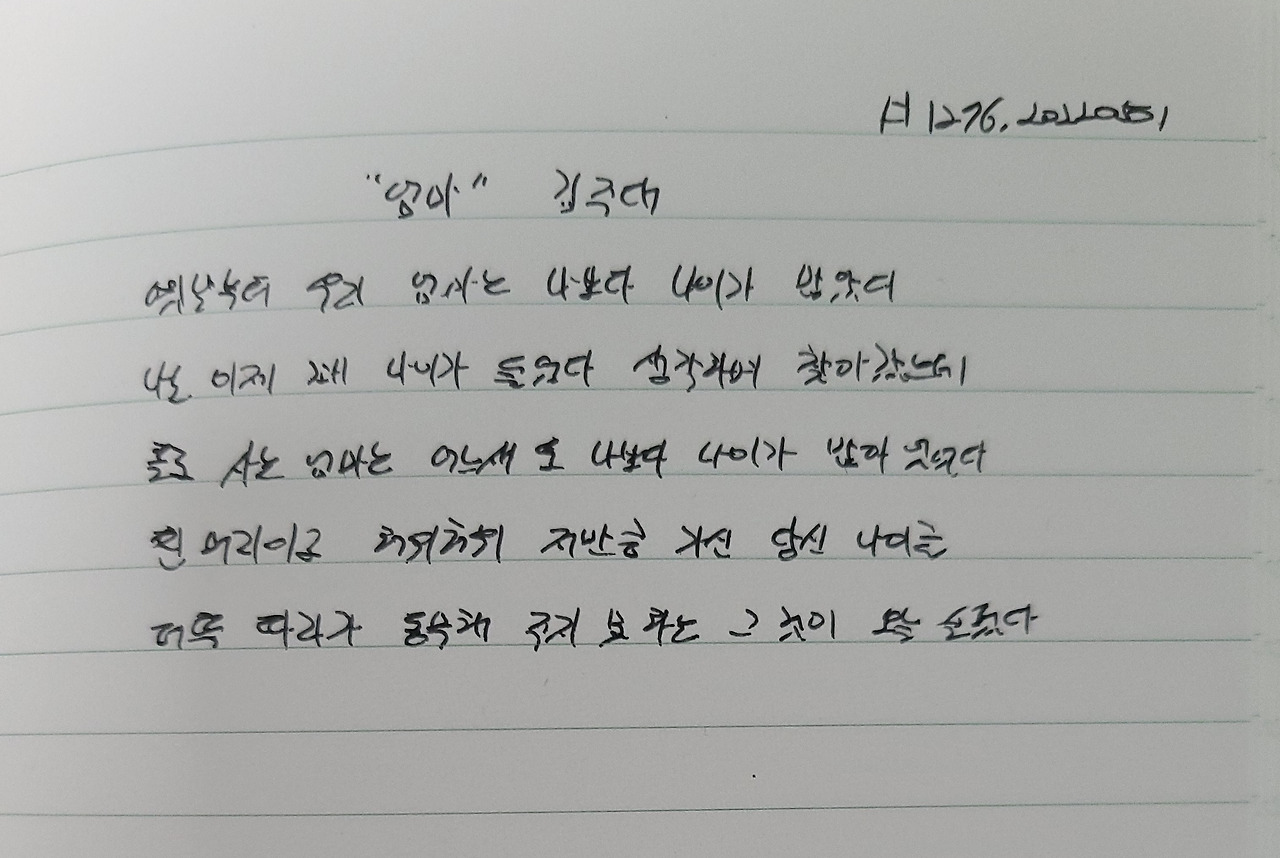 시 1276. 2022051
"엄마" 김주대
옛날부터 우리 엄마는 나보다 나이가 많았다
나도 이제 꽤 나이가 들었다 생각하며 찾아갔는데
홀로 사는 엄마는 어느새 또 나보다 나이가 많아 있었다
흰 머리이고 허위허위 저만큼 가신 당신 나이를
어뜩 따라가 동무해 주지 못하는 그 것이 오늘 슬펐다